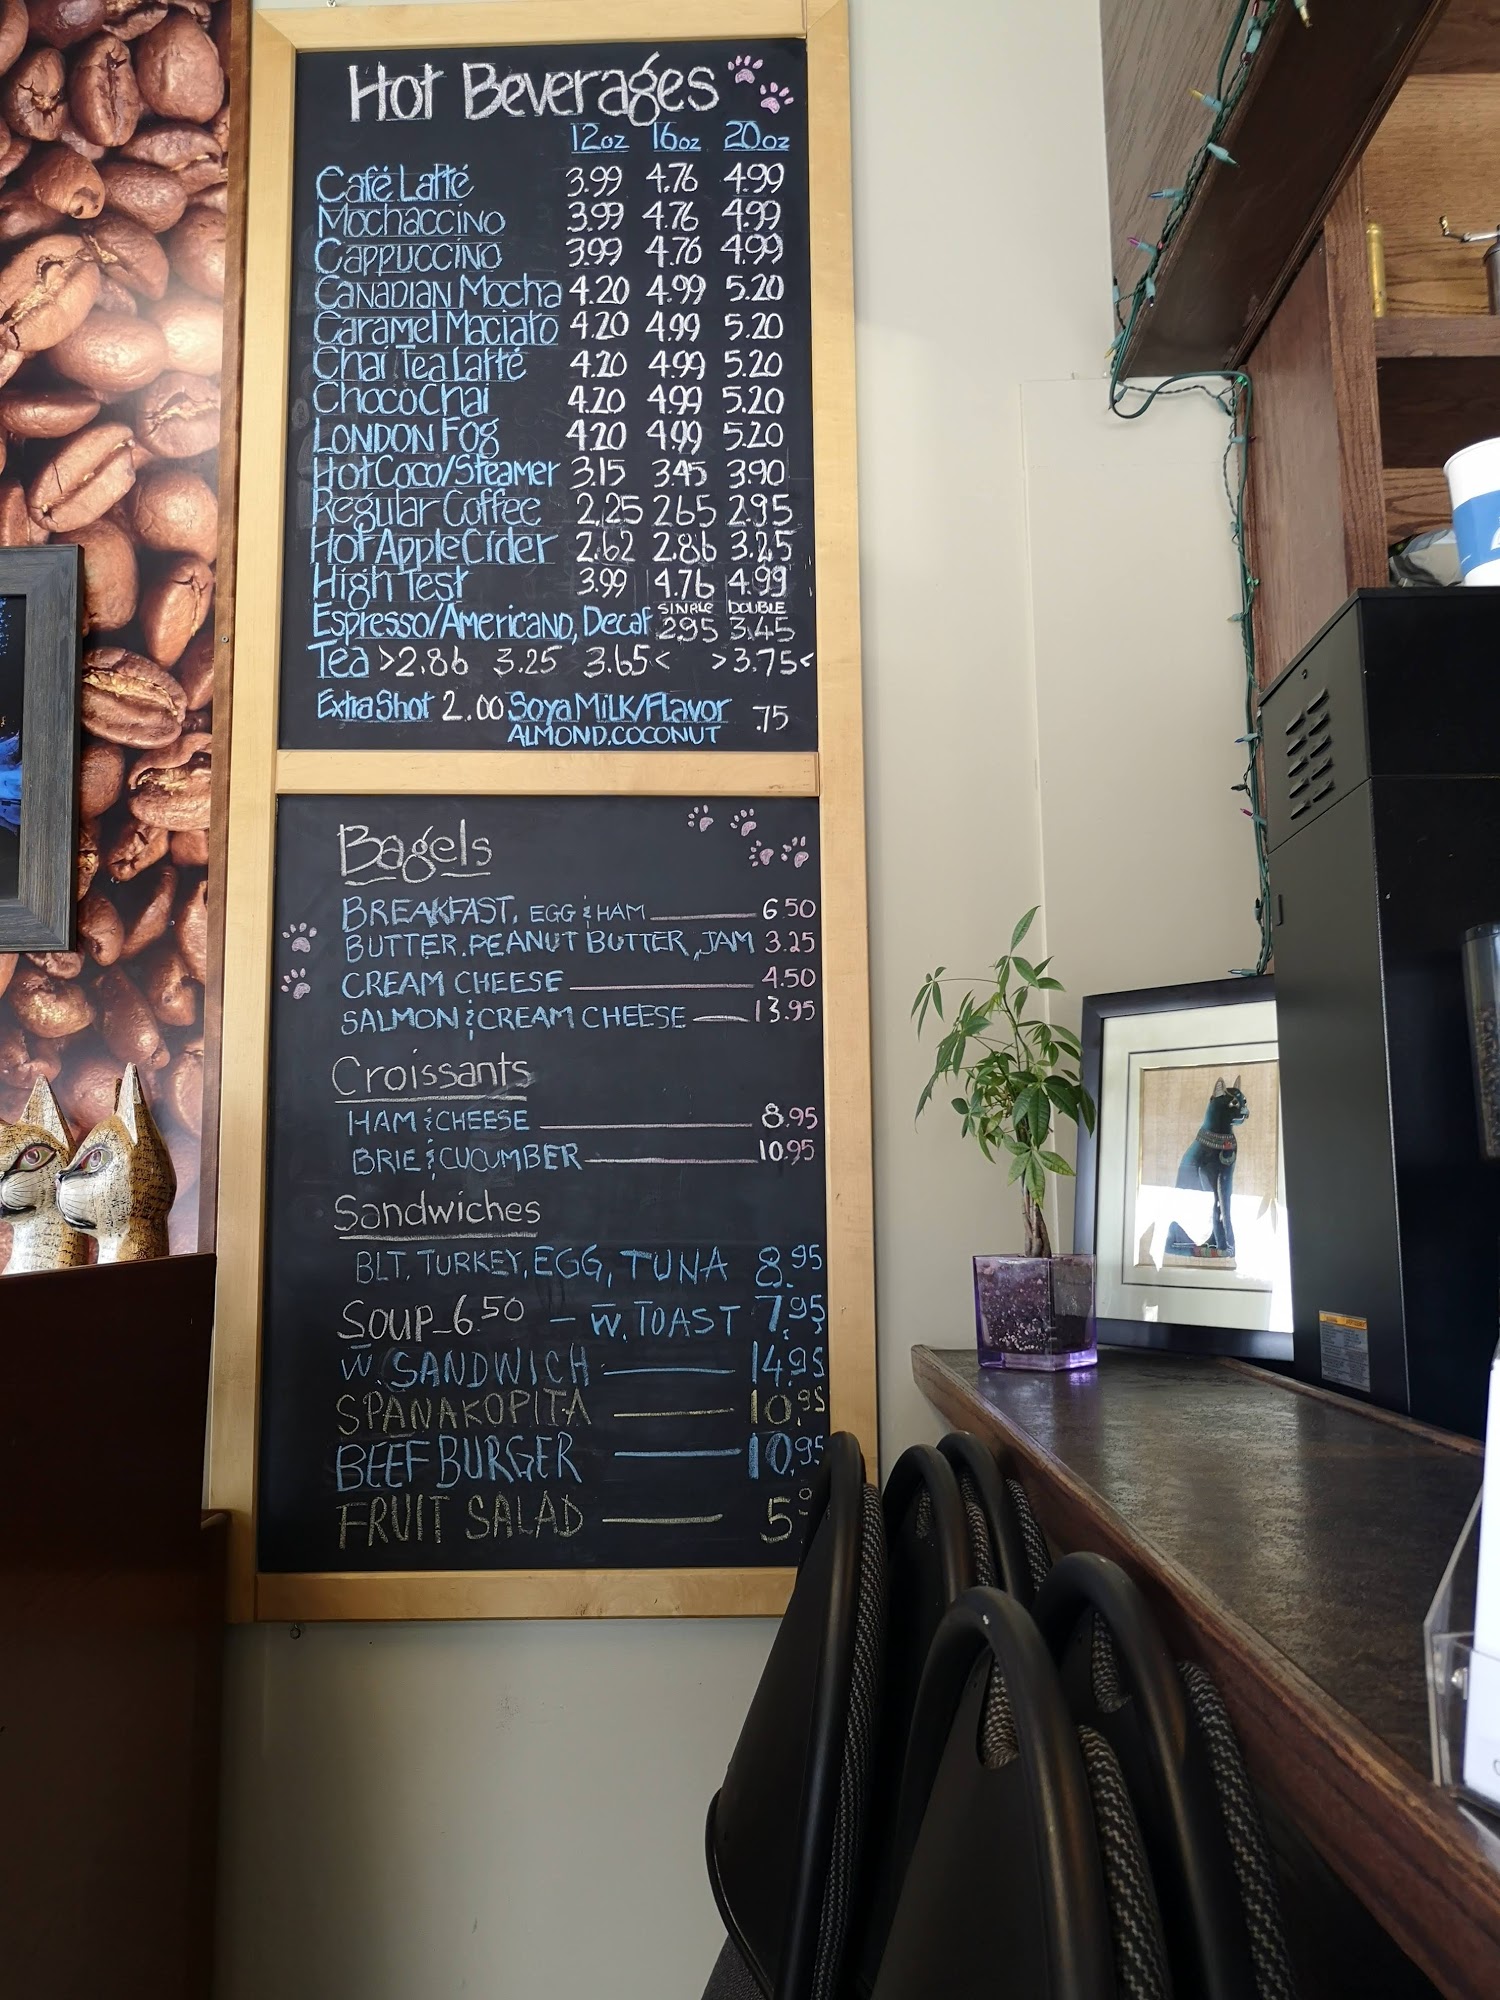 Hot Beverages
12oz 16oz 20oz
Café Latté 3.99 4.76 4.99
Mochaccino 3.99 4.76 4.99
Cappuccino 3.99 4.76 4.99
Canadian Mocha 4.20 4.99 5.20
Caramel Maciato 4.20 4.99 5.20
Chai Tea Latté 4.20 4.99 5.20
Choco Chai 4.20 4.99 5.20
London Fog 4.20 4.99 5.20
Hot Coco/Steamer 3.15 3.45 3.90
Regular Coffee 2.25 2.65 2.95
Hot Apple Cider 2.62 2.86 3.25
High Test 3.99 4.76 4.99
SINGLE DOUBLE
Espresso/Americano, Decaf 2.95 3.45
Tea >2.86 3.25 3.65< >3.75<
Extra Shot 2.00 Soya Milk/Flavor .75
ALMOND, COCONUT
Bagels
BREAKFAST, EGG & HAM 6.50
BUTTER, PEANUT BUTTER, JAM 3.25
CREAM CHEESE 4.50
SALMON & CREAM CHEESE 13.95
Croissants
HAM & CHEESE 8.95
BRIE & CUCUMBER 10.95
Sandwiches
BLT, TURKEY, EGG, TUNA 8.95
SOUP - 6.50 - W. TOAST 7.95
W. SANDWICH 14.95
SPANAKOPITA 10.95
BEEF BURGER 10.95
FRUIT SALAD